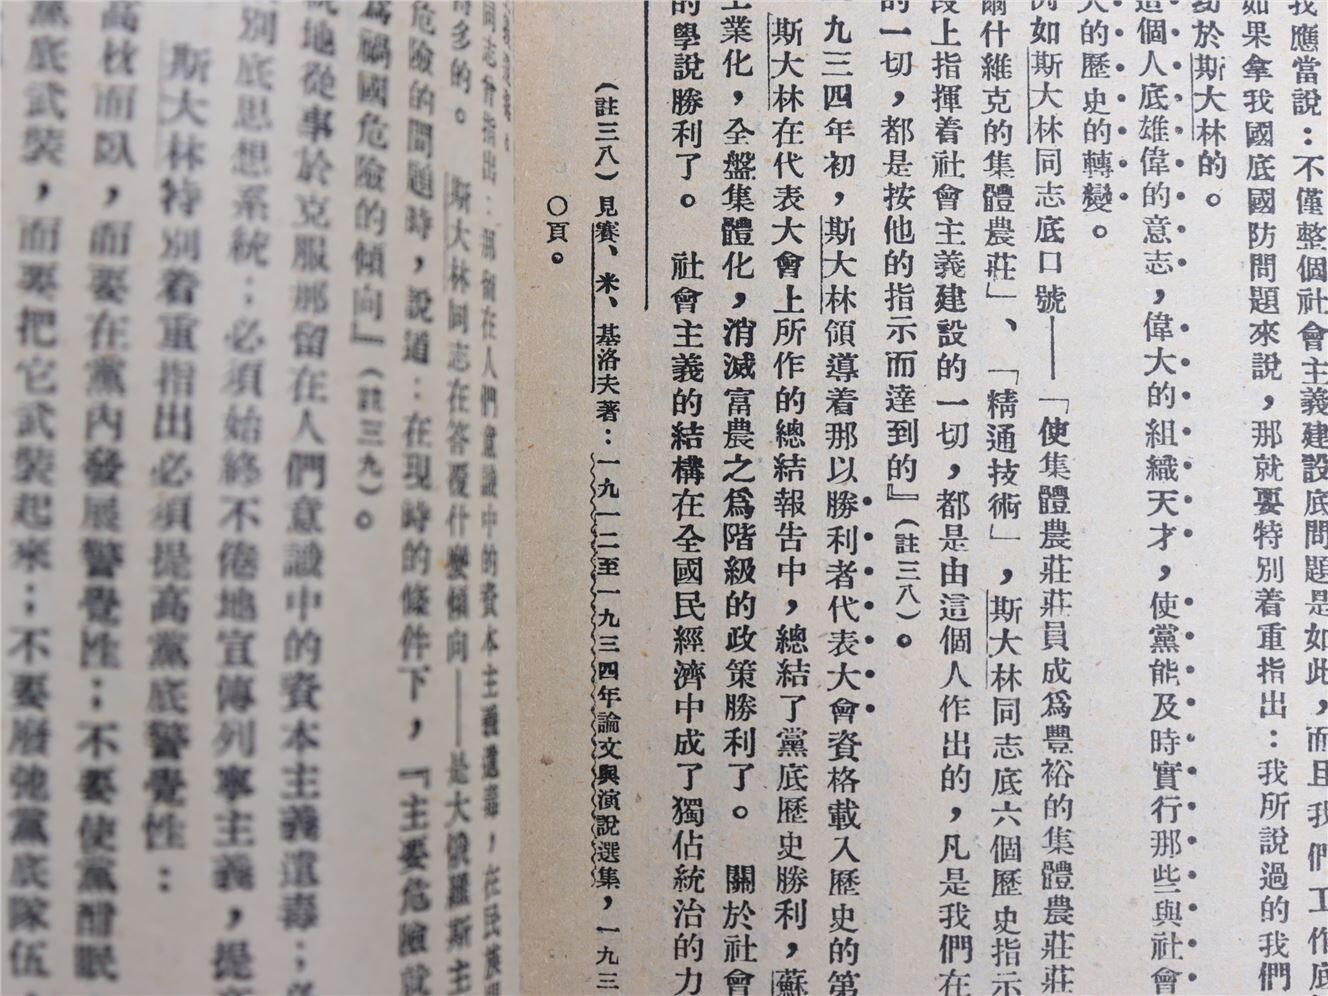 我應當說：不僅整個社會主義建設底問題是如此，而且我們工作底
如果拿我國底國防問題來說，那就要特別着重指出：我所說過的我們
於斯大林的。
這個人底雄偉的意志，偉大的組織天才，使黨能及時實行那些與社會
大的歷史的轉變。
例如斯大林同志底口號——「使集體農莊莊員成爲豐裕的集體農莊莊
爾什維克的集體農莊」、「精通技術」，斯大林同志底六個歷史指示
段上指揮着社會主義建設的一切，都是由這個人作出的，凡是我們在
的一切，都是按他的指示而達到的』（註三八）。
九三四年初，斯大林領導着那以勝利者代表大會資格載入歷史的第
斯大林在代表大會上所作的總結報告中，總結了黨底歷史勝利，蘇
業化，全盤集體化，消滅富農之爲階級的政策勝利了。 關於社會
的學說勝利了。 社會主義的結構在全國民經濟中成了獨佔統治的力
（註三八）見賽、米、基洛夫著：一九一二至一九三四年論文與演說選集，一九三
〇頁。
同志曾指出：那留在人們意識中的資本主義遺毒，在民族問
得多的。 斯大林同志在答覆什麼傾向——是大俄羅斯主
危險的問題時，說道：在現時的條件下，『主要危險就
爲禍國危險的傾向』（註三九）。
地從事於克服那留在人們意識中的資本主義遺毒；必
別底思想系統；必須始終不倦地宣傳列寧主義，提高
斯大林特別着重指出必須提高黨底警覺性：
高枕而臥，而要在黨內發展警覺性；不要使黨酣眠
黨底武裝，而要把它武裝起來；不要廢弛黨底隊伍